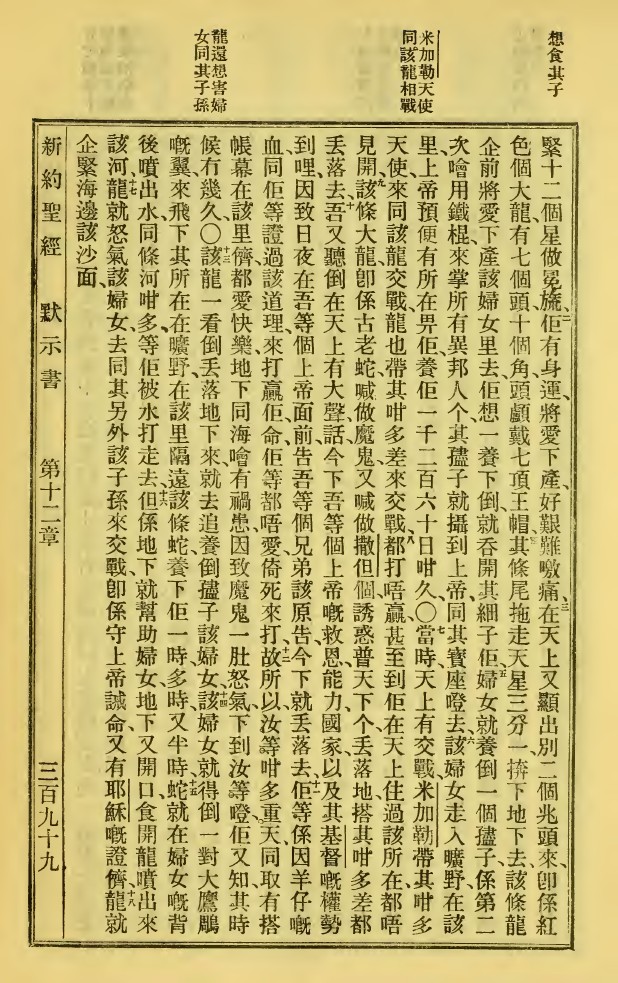 想食其子
米加勒天使
同該龍相戰
龍還想害婦
女同其子孫
緊十二個星做冕旒、二佢有身運、將愛下產、好艱難噭痛、三在天上又顯出別二個兆頭來、即係紅
色個大龍有七個頭十個角、頭顱戴七頂王帽、四其條尾拖走天星三分一、擠下地下去、該條龍
企前將愛下產該婦女里去、佢想一養下倒、就吞開其細子佢、五婦女就養倒一個孻子、係第二
次噲用鐵棍來掌所有異邦人个、其孻子就攝到上帝、同其寶座嶝去、六該婦女走入曠野、在該
里上帝預便有所在畀佢、養佢一千二百六十日咁久、〇七當時天上有交戰、米加勒帶其咁多
天使、來同該龍交戰、龍也帶其咁多差來交戰、八都打唔贏、甚至到佢在天上住過該所在都唔
見開、九該條大龍、即係古老蛇、喊做魔鬼、又喊做撒但、個誘惑普天下个、丟落地、搭其咁多差都
丟落去、十吾又聽倒在天上有大聲話、今下吾等個上帝嘅救恩、能力、國家、以及其基督嘅權勢
到哩、因致日夜在吾等個上帝面前、告吾等個兄弟該原告、今下就丟落去、十一佢等係因羊仔嘅
血、同佢等證過該道理、來打贏佢、命佢等都唔愛、倚死來打、十二故所以汝等咁多重天、同取有搭
帳幕在該里儕、都愛快樂、地下同海噲有禍患、因致魔鬼一肚怒氣、下到汝等嶝、佢又知其時
候冇幾久、〇十三該龍一看倒丟落地下來、就去追養倒孻子該婦女、十四該婦女就得倒一對大鷹鵰
嘅翼、來飛下其所在、在曠野、在該里隔遠該條蛇、養下佢一時、多時、又半時、十五蛇就在婦女嘅背
後、噴出水同條河咁多、等佢被水打走去、十六但係地下就幫助婦女、地下又開口、食開龍噴出來
該河、十七龍就怒氣該婦女、去同其另外該子孫來交戰、即係守上帝誡命、又有耶穌嘅證儕、十八龍就
企緊海邊該沙面、
新約聖經 默示書 第十二章 三百九十九